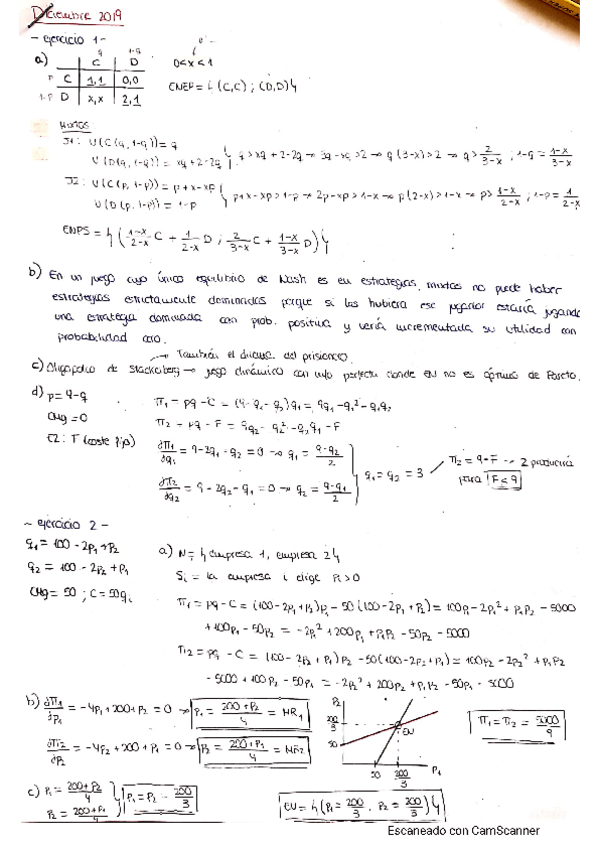 Diciembre 2019
- ejercicio 1 -
a)
q 1-q
C D
p C 1,1 0,0
1-p D x,x 2,1
0<x<1
ENEP = { (C,C) ; (D,D) }
MIXTOS
J1: U(C(q,1-q)) = q
U(D(q,1-q)) = xq+2-2q
q > xq+2-2q → 3q-xq>2 → q(3-x)>2 → q > 2/3-x ; 1-q = 1-x/3-x
J2: U(C(p,1-p)) = p+x-xp
U(D(p,1-p)) = 1-p
p+x-xp > 1-p → 2p-xp > 1-x → p(2-x) > 1-x → p > 1-x/2-x ; 1-p = 1/2-x
ENPS = { (1-x/2-x C + 1/2-x D ; 2/3-x C + 1-x/3-x D) }
b) En un juego cuyo único equilibrio de Nash es en estrategias mixtas no puede haber
estrategias estrictamente dominadas porque si las hubiera ese jugador estaría jugando
una estrategia dominada con prob. positiva y vería incrementada su utilidad con
probabilidad cero.
→ También el dilema del prisionero.
c) Oligopolio de Stackelberg → juego dinámico con info perfecta donde EN no es óptimo de Pareto.
d) p = 9-q
CMg = 0
E2: F (coste fijo)
π1 = pq - C = (9-q2-q1)q1 = 9q1-q1²-q1q2
π2 = pq - F = 9q2-q2²-q2q1-F
∂π1/∂q1 = 9-2q1-q2 = 0 → q1 = 9-q2/2
∂π2/∂q2 = 9-2q2-q1 = 0 → q2 = 9-q1/2
q1 = q2 = 3
π2 = 9-F → 2 producirá
para F<9
- ejercicio 2 -
q1 = 100-2p1+p2
q2 = 100-2p2+p1
CMg = 50 ; C = 50qi
a) N = { empresa 1, empresa 2 }
Si = la empresa i elige Pi>0
π1 = pq - C = (100-2p1+p2)p1 - 50(100-2p1+p2) = 100p1-2p1²+p1p2-5000
+100p1-50p2 = -2p1²+200p1+p1p2-50p2-5000
π2 = pq - C = (100-2p2+p1)p2-50(100-2p2+p1) = 100p2-2p2²+p1p2
-5000+100p2-50p1 = -2p2²+200p2+p1p2-50p1-5000
b) ∂π1/∂p1 = -4p1+200+p2 = 0 → p1 = 200+p2/4 = MR1
∂π2/∂p2 = -4p2+200+p1 = 0 → p2 = 200+p1/4 = MR2
P2
200/3
50
EN
50 200/3 P1
π1 = π2 = 5000/9
c) p1 = 200+p2/4
p2 = 200+p1/4
p1 = p2 = 200/3
EN = { (p1 = 200/3 , p2 = 200/3) }
Escaneado con CamScanner